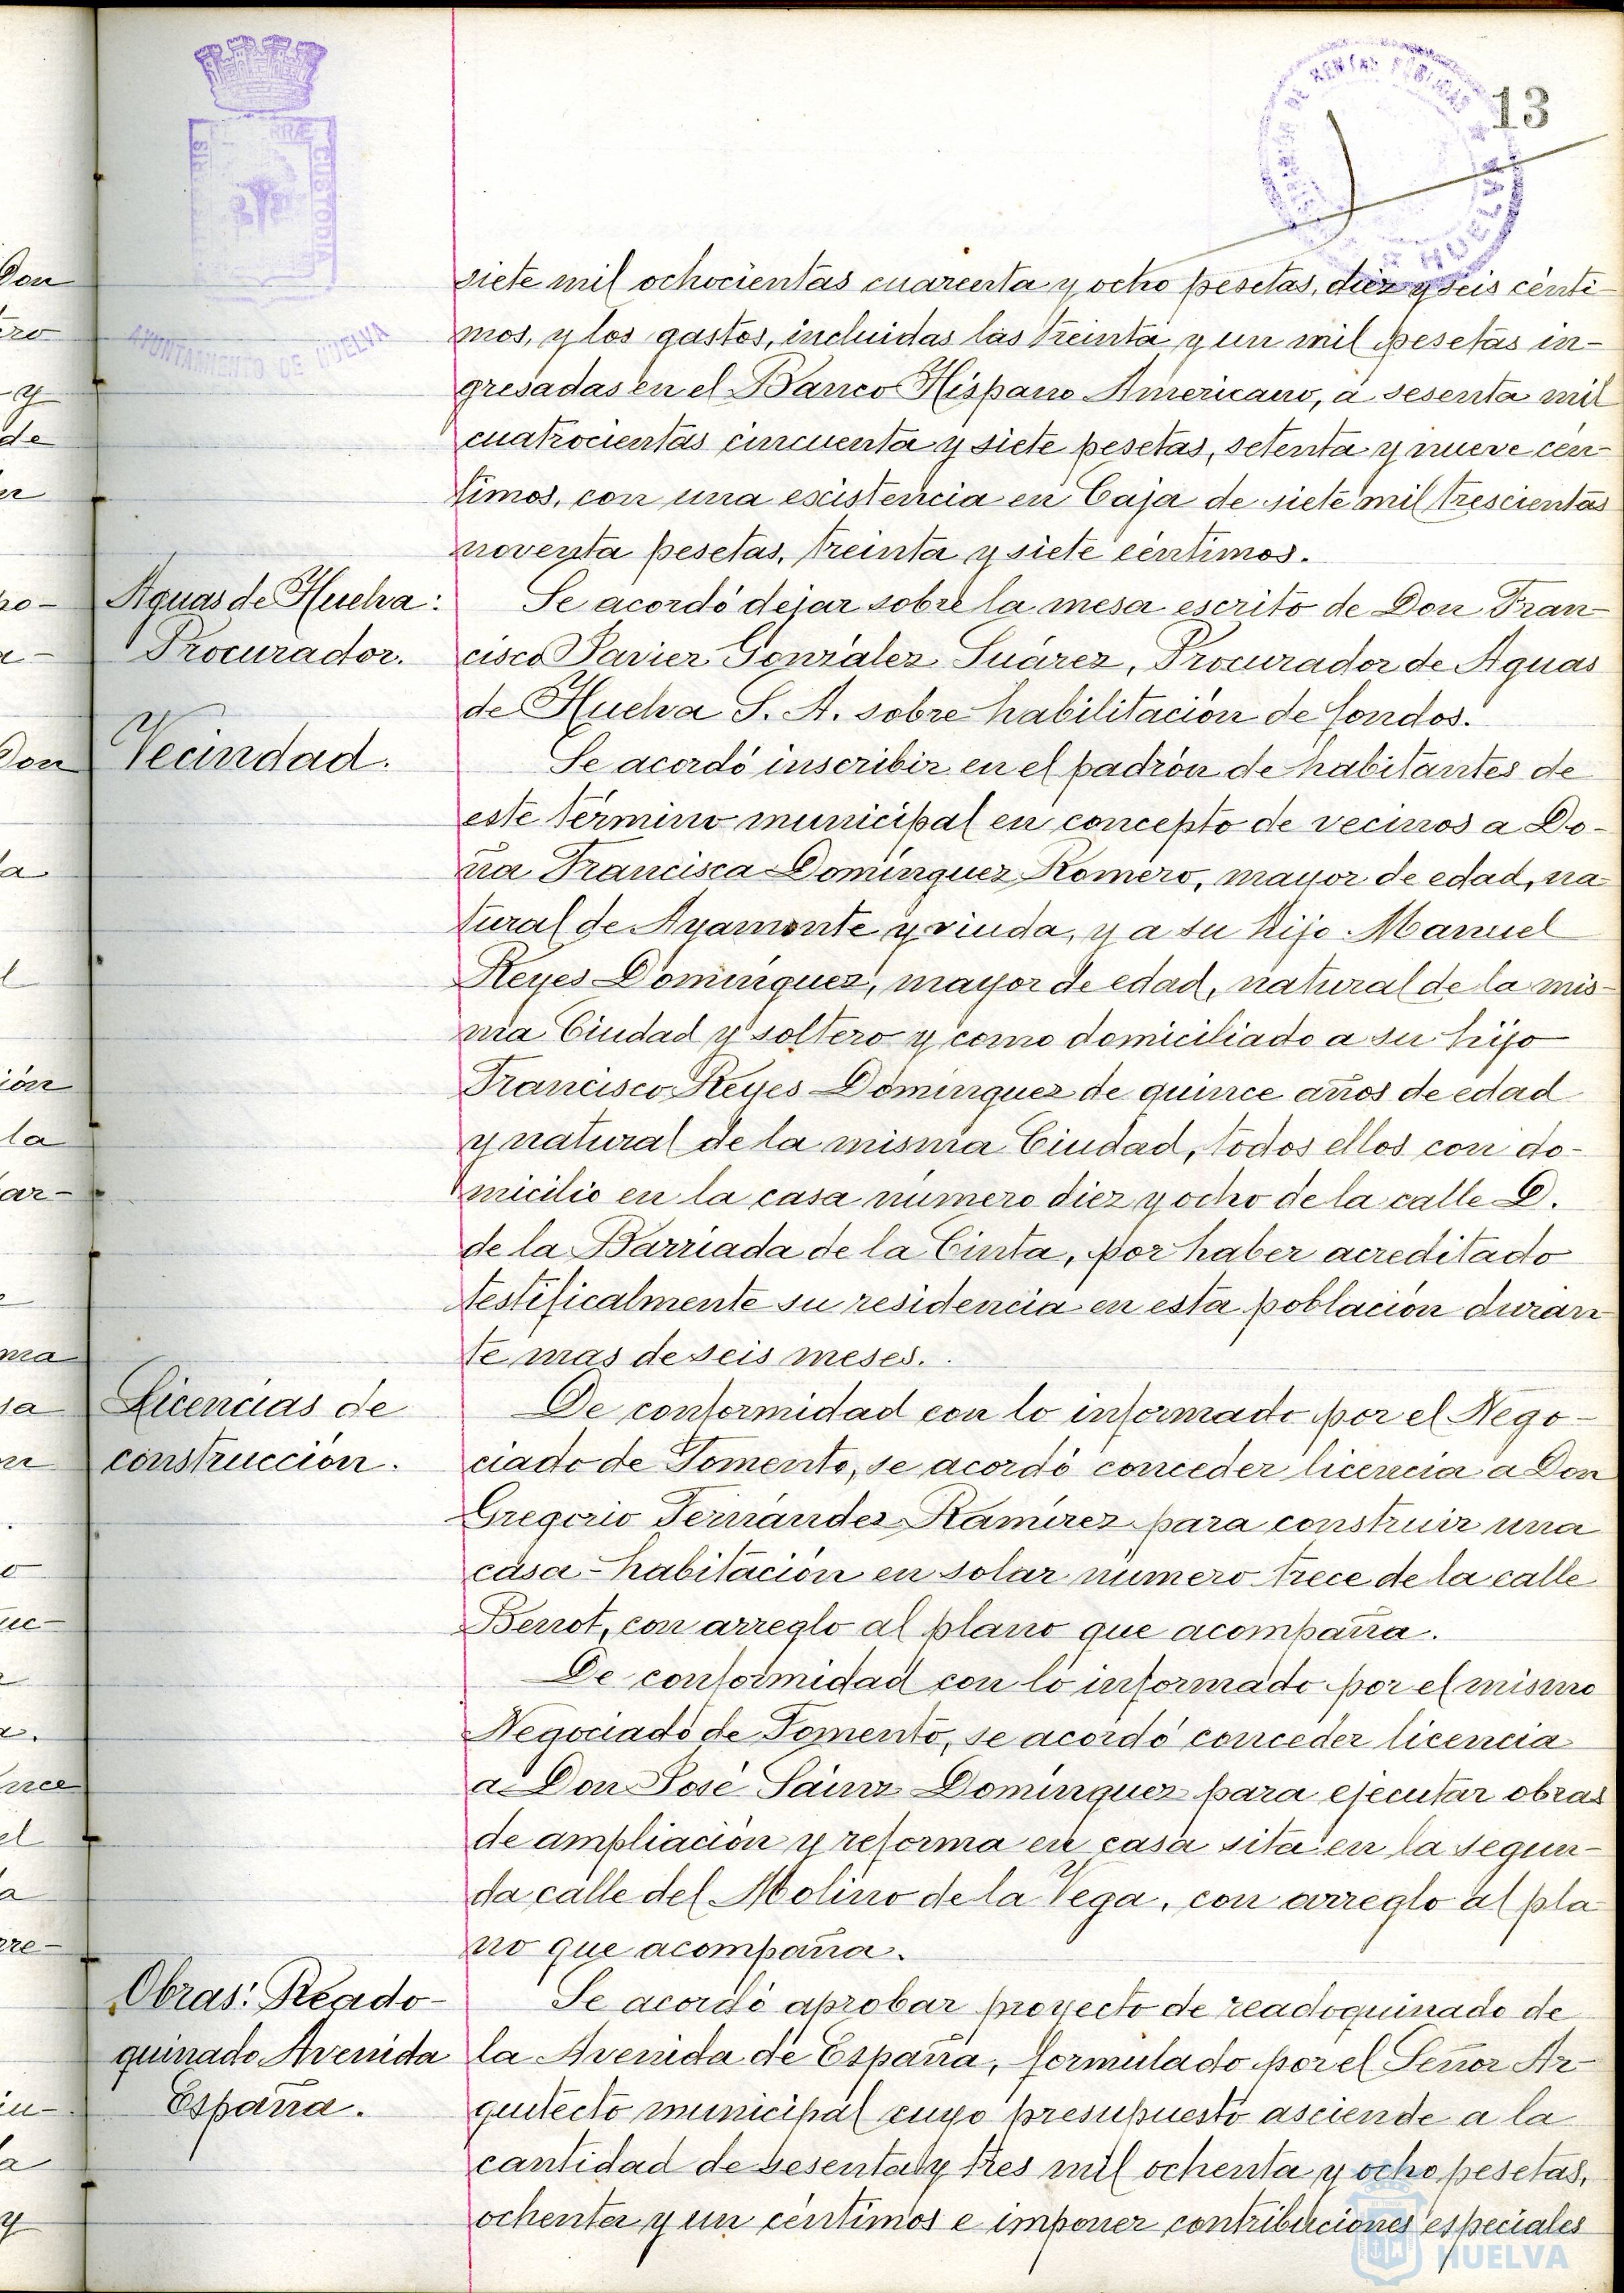 13
AYUNTAMIENTO DE HUELVA
siete mil ochocientas cuarenta y ocho pesetas, diez y seis cénti-
mos, y los gastos, incluidas las treinta y un mil pesetas in-
gresadas en el Banco Hispano Americano, a sesenta mil
cuatrocientas cincuenta y siete pesetas, setenta y nueve cén-
timos, con una existencia en Caja de siete mil trescientas
noventa pesetas, treinta y siete céntimos.
Aguas de Huelva:
Procurador.
Se acordó dejar sobre la mesa escrito de Don Fran-
cisco Javier González Suárez, Procurador de Aguas
de Huelva S. A. sobre habilitación de fondos.
Vecindad.
Se acordó inscribir en el padrón de habitantes de
este término municipal en concepto de vecinos a Do-
ña Francisca Domínguez Romero, mayor de edad, na-
tural de Ayamonte y viuda, y a su hijo Manuel
Reyes Domínguez, mayor de edad, natural de la mis-
ma Ciudad y soltero y como domiciliado a su hijo
Francisco Reyes Domínguez de quince años de edad
y natural de la misma Ciudad, todos ellos con do-
micilio en la casa número diez y ocho de la calle D.
de la Barriada de la Cinta, por haber acreditado
testificalmente su residencia en esta población duran
te mas de seis meses.
Licencias de
construcción.
De conformidad con lo informado por el Nego-
ciado de Fomento, se acordó conceder licencia a Don
Gregorio Fernández Ramírez para construir una
casa-habitación en solar número trece de la calle
Benot, con arreglo al plano que acompaña.
De conformidad con lo informado por el mismo
Negociado de Fomento, se acordó conceder licencia
a Don José Sáinz Domínguez para ejecutar obras
de ampliación y reforma en casa sita en la segun-
da calle del Molino de la Vega, con arreglo al pla
no que acompaña.
Obras: Reado-
quinado Avenida
España.
Se acordó aprobar proyecto de readoquinado de
la Avenida de España, formulado por el Señor Ar-
quitecto municipal cuyo presupuesto asciende a la
cantidad de sesenta y tres mil ochenta y ocho pesetas,
ochenta y un céntimos e imponer contribuciones especiales
HUELVA